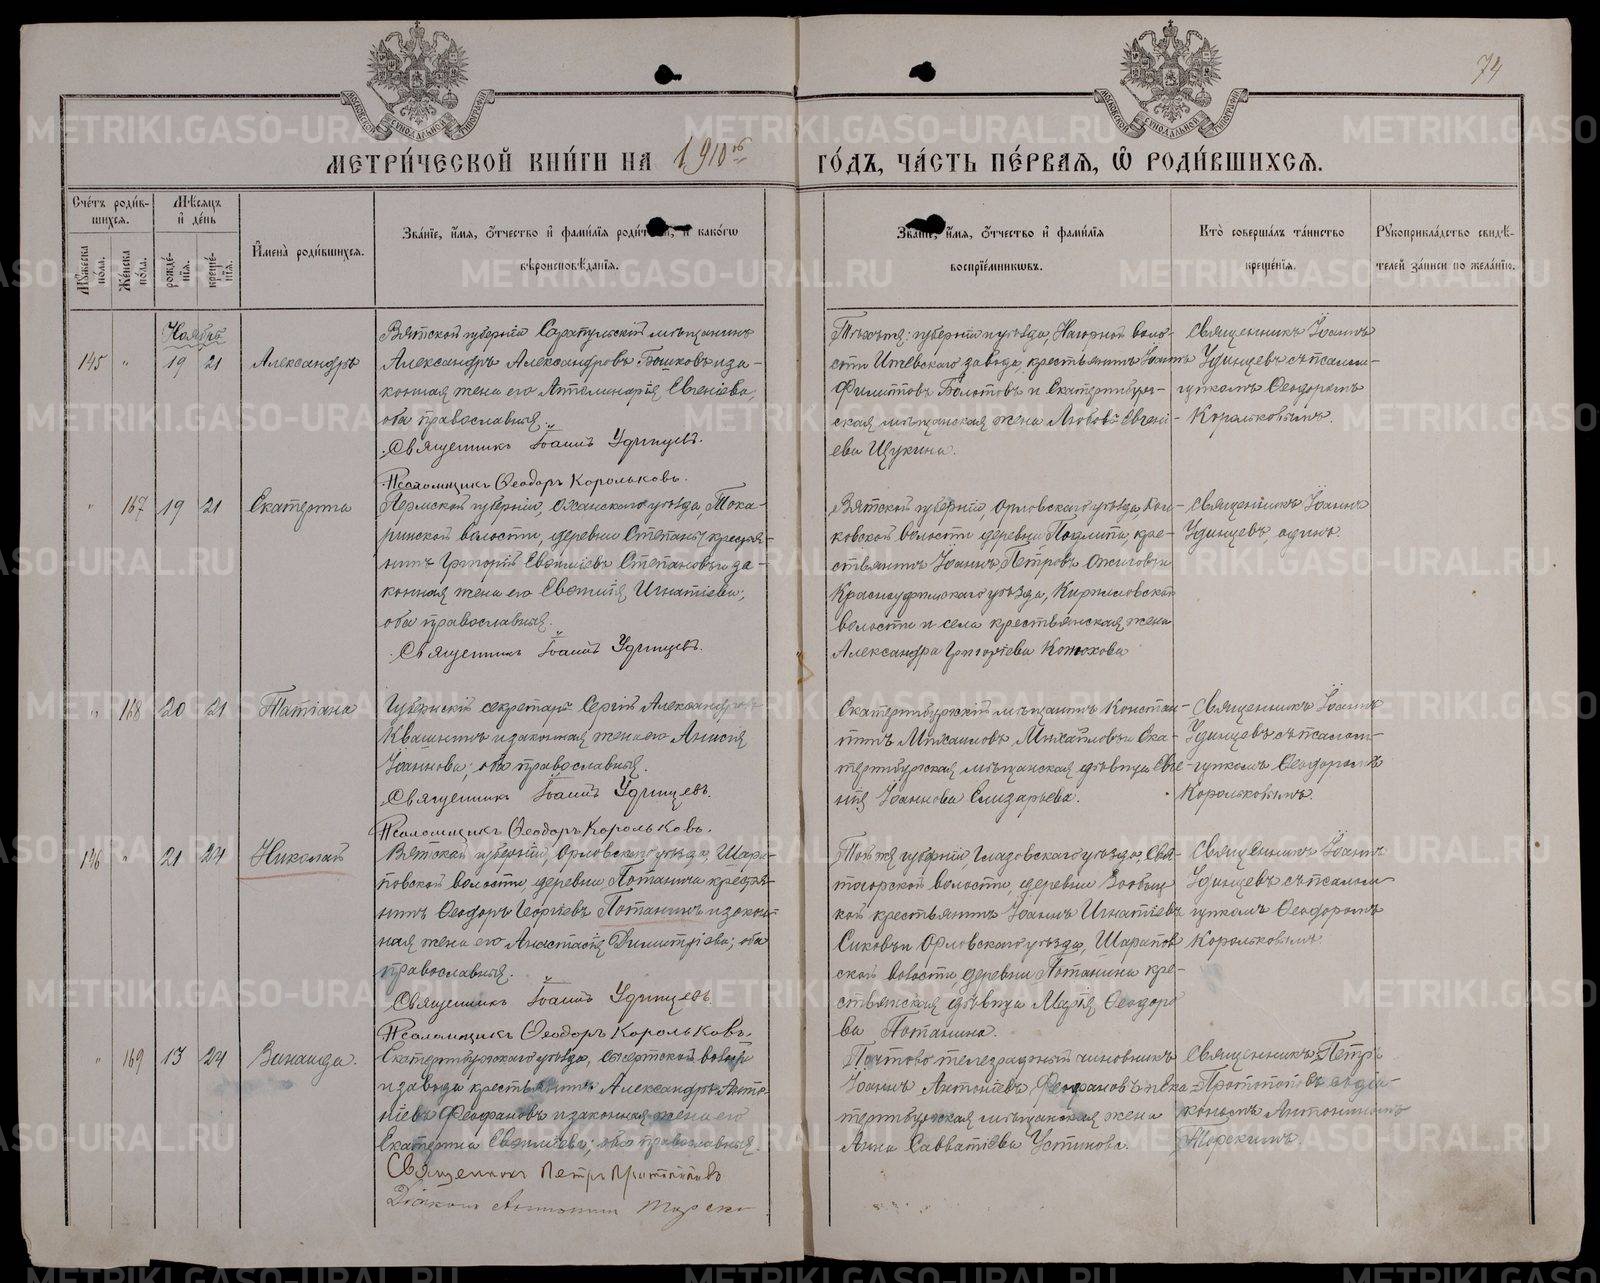 74
МОСКОВСКОЙ СУНОДАЛЬНОЙ ТИПОГРАФІИ
МОСКОВСКОЙ СУНОДАЛЬНОЙ ТИПОГРАФІИ
МЕТРИ́ЧЕСКОЙ КНИ́ГИ НА 1910 ГО́ДЪ, ЧА́СТЬ ПЕ́РВАЯ, Ѿ РОДИ́ВШИХСЯ.
Сче́тъ роди́вшихся.
Му́жеска по́ла.
Же́нска по́ла.
Мѣ́сяцъ и҆ де́нь
рожде́нїя.
креще́нїя.
И҆мена̀ роди́вшихся.
Зва́нїе, и҆́мя, ѻ҆́тчество и҆ фами́лїя роди́телей, и҆ како́гѡ
вѣроисповѣ́данїя.
Зва́нїе, и҆́мя, ѻ҆́тчество и҆ фами́лїя
воспрїе́мникѡвъ.
Кто̀ соверша́лъ та́инство
креще́нїя.
Рꙋкоприкла́дство свидѣ́-
телей за́писи по жела́нїю.
Ноябрь
145 " 19 21 Александръ
Вятской губерніи Сарапульскій мѣщанинъ
Александръ Александровъ Бошковъ и за-
конная жена его Евгеніева,
оба православныя.
Священникъ Іоаннъ Удинцевъ.
Псаломщикъ Ѳеодоръ Корольковъ.
губерніи и уѣзда, Нагорной воло-
сти завода, крестьянинъ Іоаннъ
Филипповъ Болотовъ и Екатеринбург-
ская мѣщанская жена Любовь Евгені-
ева Щукина.
Священникъ Іоаннъ
Удинцевъ съ псалом-
щикомъ Ѳеодоромъ
Корольковымъ.
" 167 19 21 Екатерина
Пермской губерніи, Оханскаго уѣзда, Тока-
ринской волости, деревни крестья-
нинъ Григорій Евѳиміевъ Степановъ и за-
конная жена его Евѳимія Игнатіева,
оба православныя.
Священникъ Іоаннъ Удинцевъ.
Вятской губерніи, Орловскаго уѣзда,
ковской волости деревни кре-
стьянинъ Іоаннъ Петровъ Ожиговъ и
Красноуфимскаго уѣзда, Кирилловской
волости и села крестьянская жена
Александра Григоріева Конюхова
Священникъ Іоаннъ
Удинцевъ, одинъ.
" 168 20 21 Татіана
Губернскій секретарь Сергій Александровъ
Квашнинъ и законная жена его Анисія
Іоаннова; оба православныя.
Священникъ Іоаннъ Удинцевъ.
Псаломщикъ Ѳеодоръ Корольковъ.
Екатеринбургскій мѣщанинъ Констан-
тинъ Михаиловъ Михайловъ и Ека-
теринбургская мѣщанская дѣвица Евге-
нія Іоаннова Елизарьева.
Священникъ Іоаннъ
Удинцевъ съ псалом-
щикомъ Ѳеодоромъ
Корольковымъ.
146 " 21 24 Николай
Вятской губерніи, Орловскаго уѣзда, Шара-
повской волости, деревни Потанины крестья-
нинъ Ѳеодоръ Георгіевъ Потанинъ и закон-
ная жена его Анастасія Димитріева; оба
православныя.
Священникъ Іоаннъ Удинцевъ.
Псаломщикъ Ѳеодоръ Корольковъ.
Той же губерніи, Глазовскаго уѣзда, Свя-
тогорской волости, деревни
крестьянинъ Іоаннъ Игнатіевъ
Сиковъ и Орловскаго уѣзда, Шарапов-
ской волости деревни Потанины кре-
стьянская дѣвица Марія Ѳеодоро-
ва Потанина.
Священникъ Іоаннъ
Удинцевъ съ псалом-
щикомъ Ѳеодоромъ
Корольковымъ.
" 169 13 24 Зинаида.
Екатеринбургскаго уѣзда, Сысертской волости
и завода крестьянинъ Александръ Анто-
ніевъ Ѳеофановъ и законная жена его
Екатерина Евѳиміева; оба православныя.
Священникъ Петръ Протопоповъ
Діаконъ Антонинъ
Почтово телеграфный чиновникъ
Іоаннъ Антоніевъ Ѳеофановъ и Ека-
теринбургская мѣщанская жена
Анна Савватіева Устинова.
Священникъ Петръ
Протопоповъ съ діа-
кономъ Антониномъ